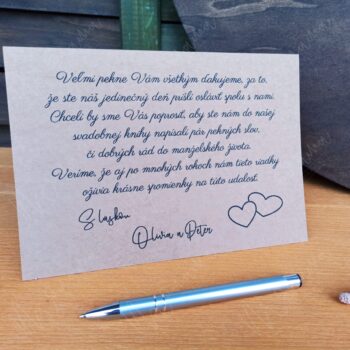 Veľmi pekne Vám všetkým ďakujeme, za to,
že ste náš jedinečný deň prišli osláviť spolu s nami.
Chceli by sme Vás poprosiť, aby ste nám do našej
svadobnej knihy napísali pár pekných slov,
či dobrých rád do manželského života.
Veríme, že aj po mnohých rokoch nám tieto riadky
oživia krásne spomienky na túto udalosť.
S láskou
Olívia a Peter